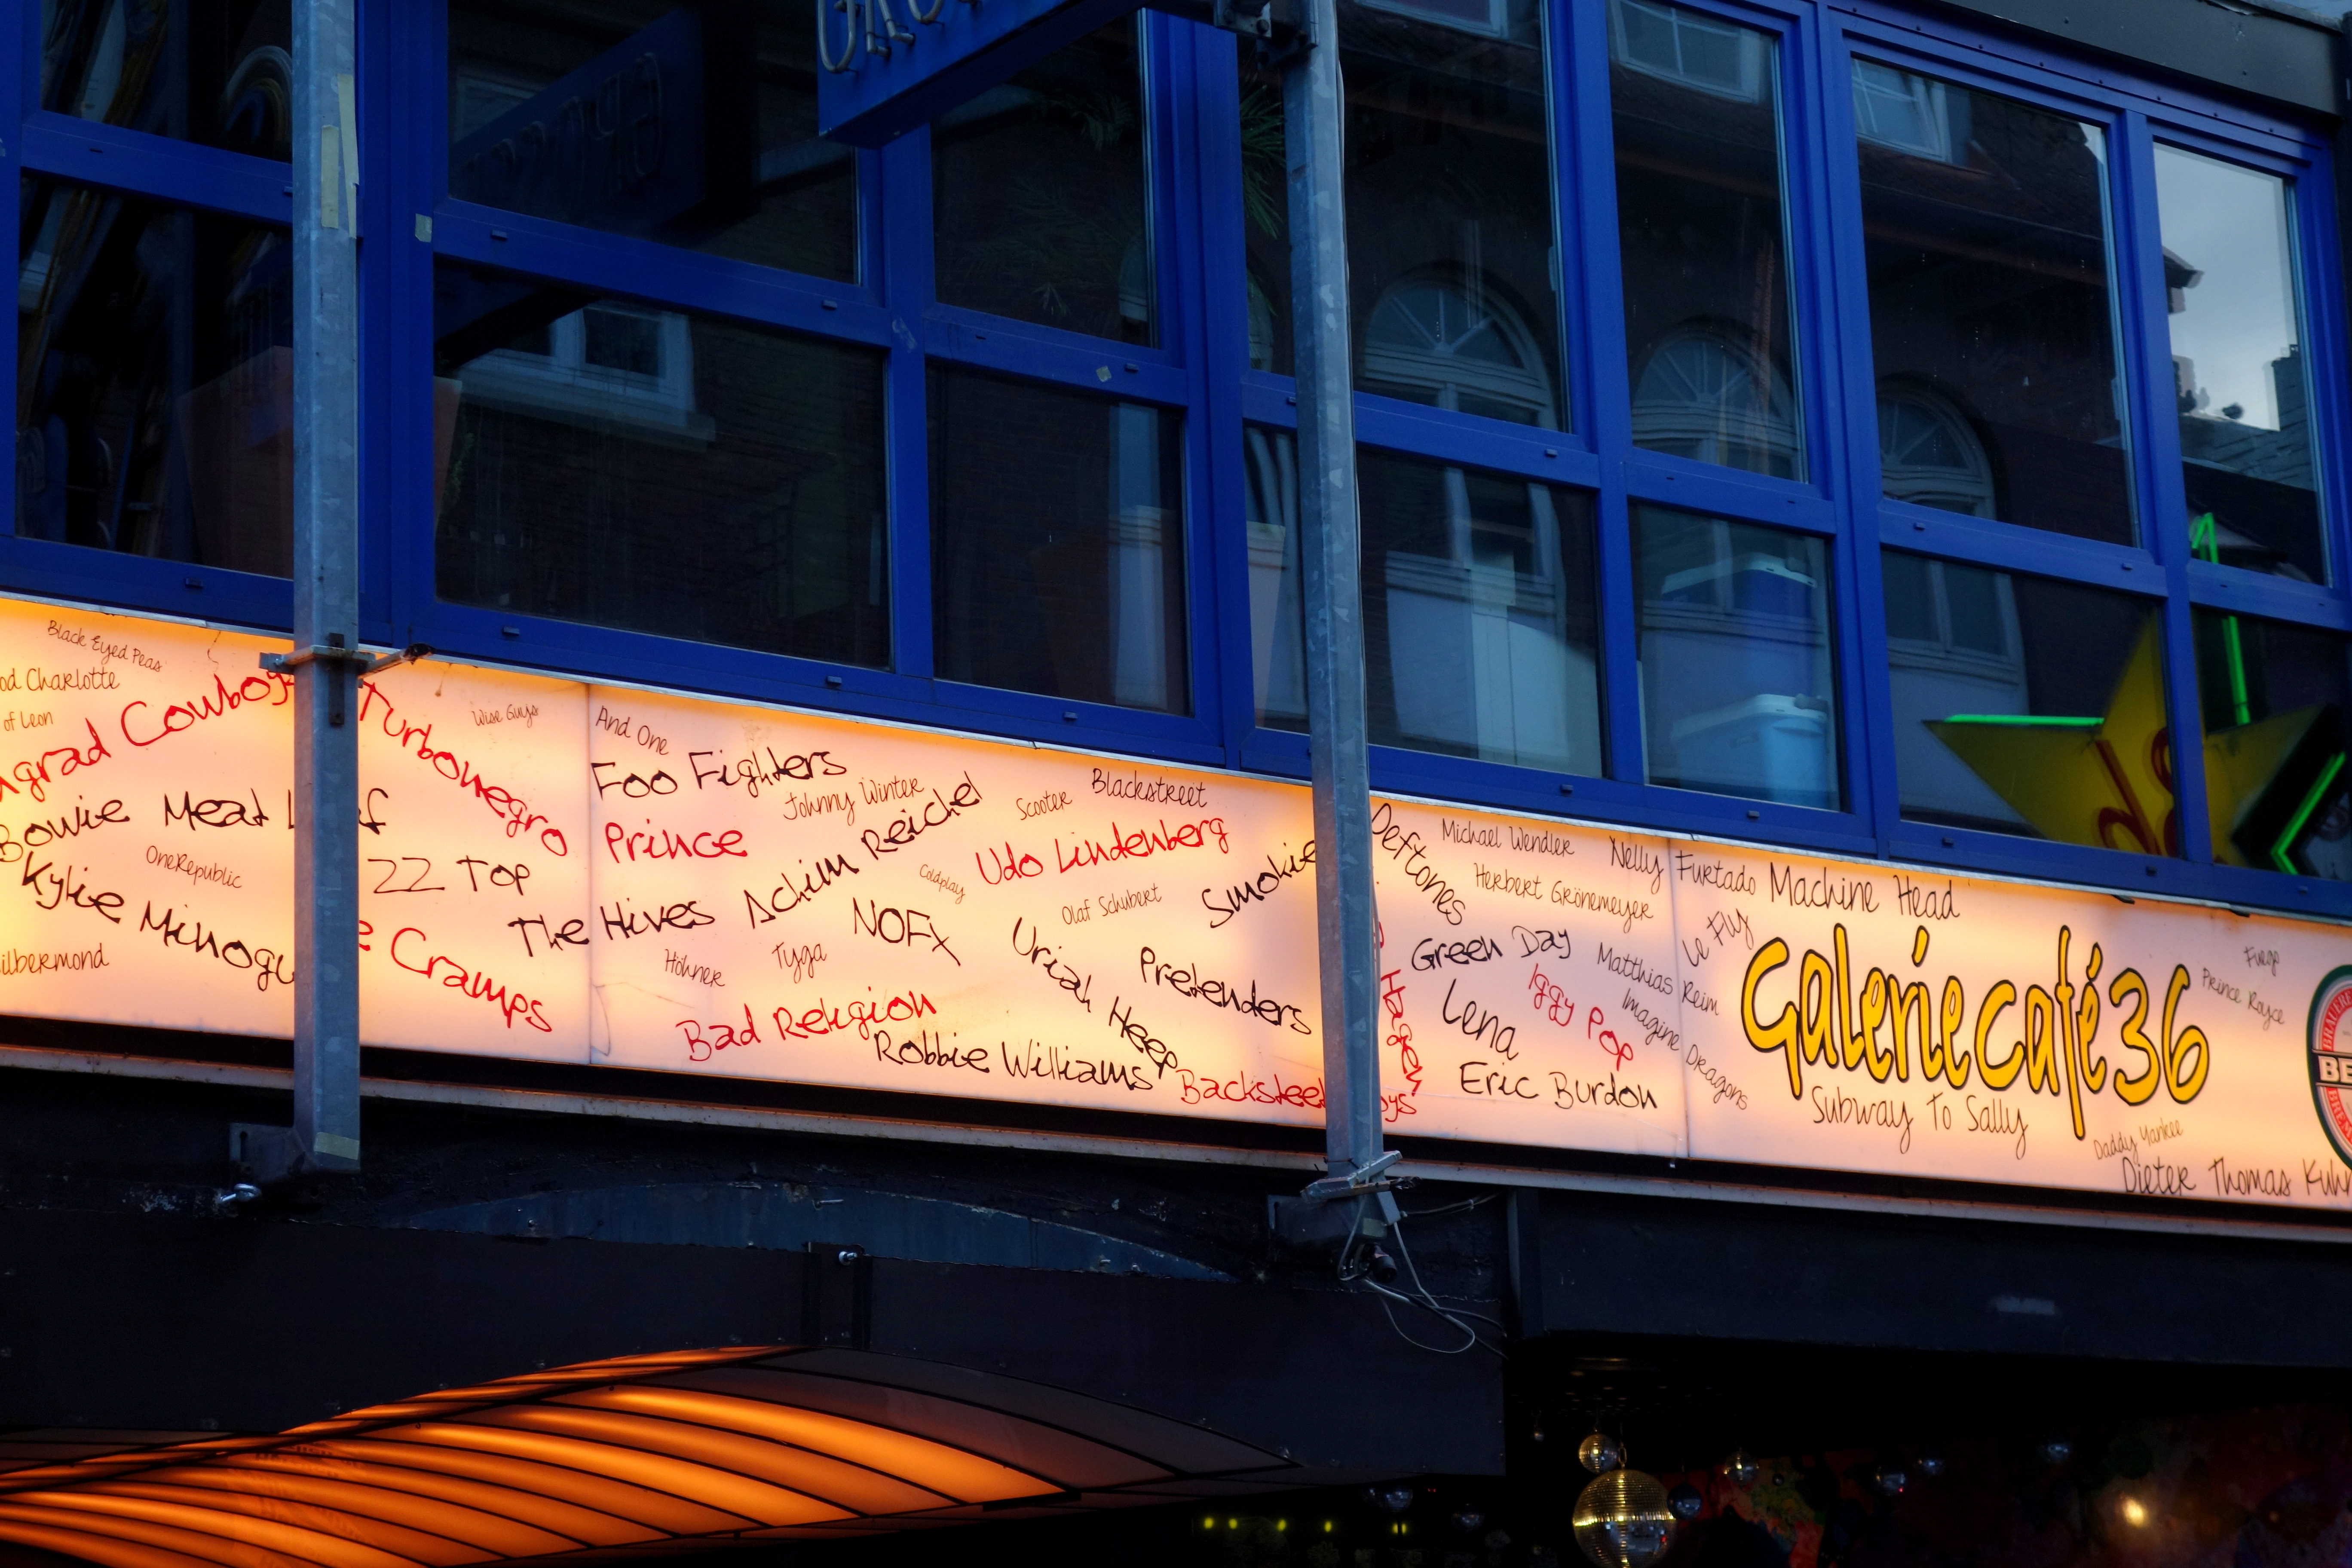 Black Eyed Peas
od Charlotte
of Leon
grad Cowboys
Bowie
Meat L f
OneRepublic
Kylie Minogu
ilbermond
Turbonegro
Wise Guys
ZZ Top
e Cramps
The Hives
And One
Foo Fighters
Johnny Winter
Prince
Achim Reichel
Scooter
Blackstreet
Udo Lindenberg
Coldplay
Olaf Schubert
Smokie
NOFX
Höhner
Tyga
Uriah Heep
Pretenders
Bad Religion
Robbie Williams
Backsteet oys
Deftones
Michael Wendler
Nelly Furtado
Herbert Grönemeyer
Machine Head
Le Fly
Green Day
Matthias Reim
Hagen
Iggy Pop
Imagine Dragons
Lena
Eric Burdon
Galeriecafé36
Fuego
Prince Royce
Subway To Sally
Daddy Yankee
Dieter Thomas Kuhn
BE